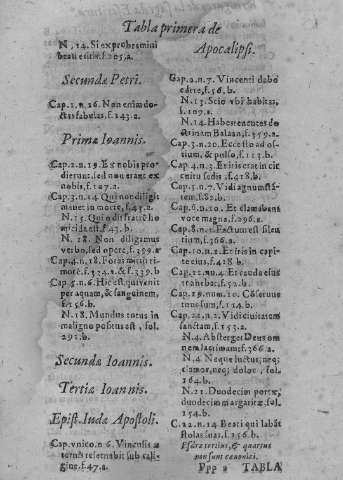 Tabla primera de
N. 14. Si exprobramini
beati estis. f. 205. a.
Secundæ Petri.
Cap. 1. n. 16. Non enim do-
ctas fabulas. f. 143. a.
Primæ Ioannis.
Cap. 2. n. 19. Ex nobis pro-
dierunt, sed non erant ex
nobis, f. 107. a.
Cap. 3. n. 14 Qui non diligit
manet in morte, f. 43. a.
N. 15. Qui odit fratrē ho
micida est f. 43. b.
N. 18. Non diligamus
verbo, sed opere, f. 399. a
Cap. 4. n. 18. Foras mittit ti-
morē. f. 324. a. & f. 339. b
Cap. 5. n. 6. Hic est qui venit
per aquam, & sanguinem,
f. 156. b.
N. 18. Mundus totus in
maligno positus est, fol.
291. b.
Secundæ Ioannis.
Tertiæ Ioannis.
Epist. Iudæ Apostoli.
Cap. vnico n. 6. Vinculis æ
ternis reseruabit sub cali-
gine. f. 47. a.
Apocalipsi.
Cap. 2. n. 7. Vincenti dabo
edere, f. 56. b.
N. 13. Scio vbi habitas,
f. 107. a.
N. 14. Habes tenentes do
ctrinam Balaan, f. 359. a.
Cap. 3. n. 20. Ecce sto ad os-
tium, & pulso, f. 113. b.
Cap. 4. n. 3. Et iris erat in cir
cuitu sedis. f. 418. b.
Cap. 5. n. 7. Vidi agnum stā-
tem, f. 82. b.
Cap. 6. n. 10. Et clamabant
voce magna, f. 296. a.
Cap. 8. n. 1. Factum est silen
tium, f. 366. a.
Cap. 10. n. 1. Et iris in capi-
te eius, f. 418. b.
Cap. 12. nu. 4. Et cauda eius
trahebat, f. 52. b.
Cap. 19. num. 10. Conseruus
tuus sum, f. 114. b.
Cap. 21. n. 2. Vidi ciuitatem
sanctam, f. 153. a.
N. 4. Absterget Deus om
nem lacrimam, f. 366. a.
N. 4. Neque luctus, neq;
clamor, neq; dolor, fol.
164. b.
N. 21. Duodecim portæ,
duodecim margaritæ. fol.
154. b.
C. 22. n. 14. Beati qui labāt
stolas suas. f. 156. b.
Esdræ tertius, & quartus
non sunt canonici.
Ppp 2 TABLA